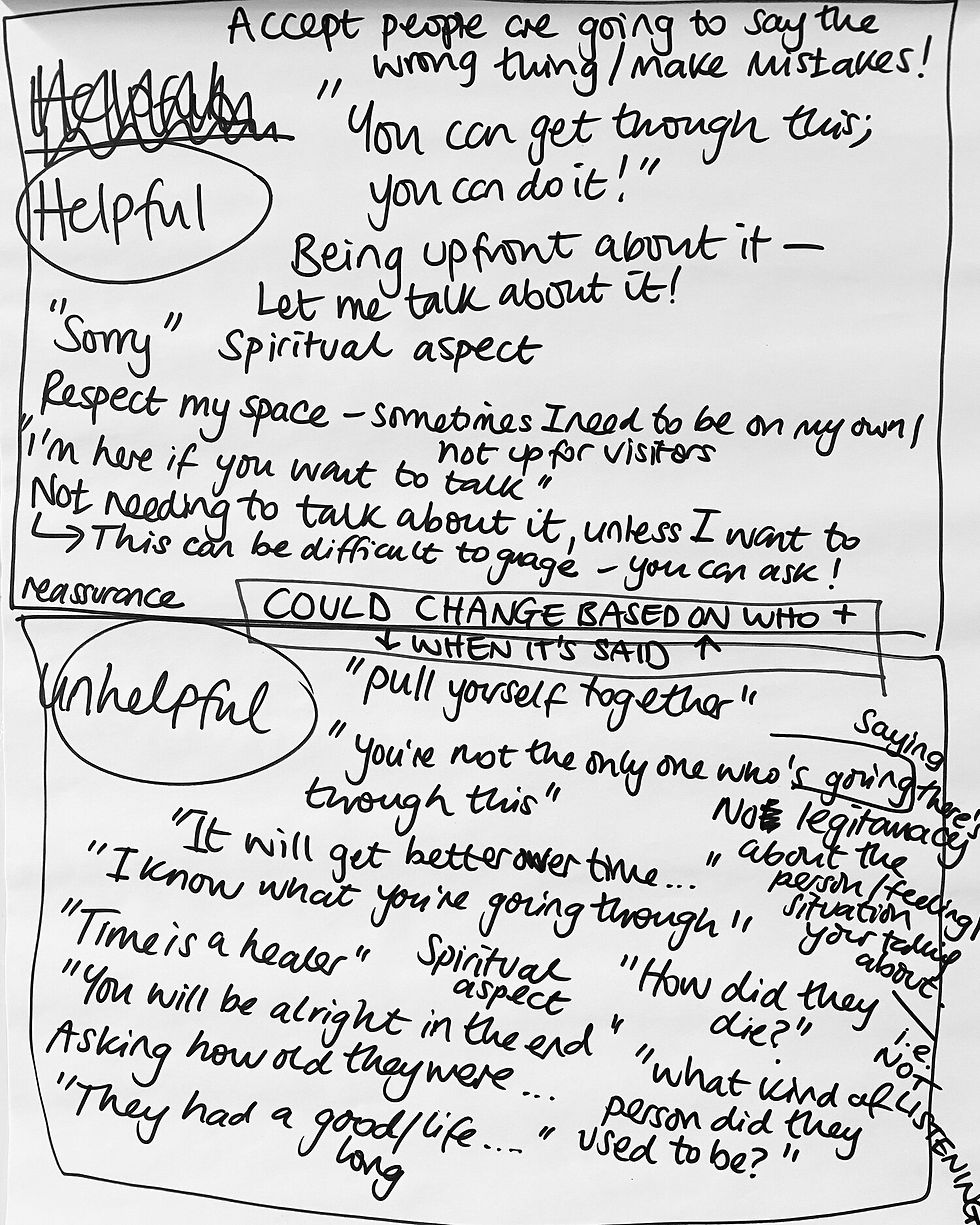 Accept people are going to say the
wrong thing/make mistakes!
Helpful
"You can get though this;
you can do it!"
Being upfront about it —
Let me talk about it!
"Sorry" Spiritual aspect
Respect my space – sometimes I need to be on my own/
not up for visitors
"I'm here if you want to talk"
Not needing to talk about it, unless I want to
↳ This can be difficult to guage – you can ask!
reassurance
COULD CHANGE BASED ON WHO +
↓ WHEN IT'S SAID ↑
Unhelpful
"pull yourself together"
"you're not the only one who's going
through this"
"It will get better over time..."
"I know what you're going through"
"Time is a healer"
Spiritual
aspect
"How did they
die?"
"You will be alright in the end"
Asking how old they were...
"what kind of
person did they
used to be?"
"They had a good/life...."
long
Saying
there's
NOT legitamacy
about the
person/feeling/
situation
your talking
about.
i.e.
NOT
LISTENING